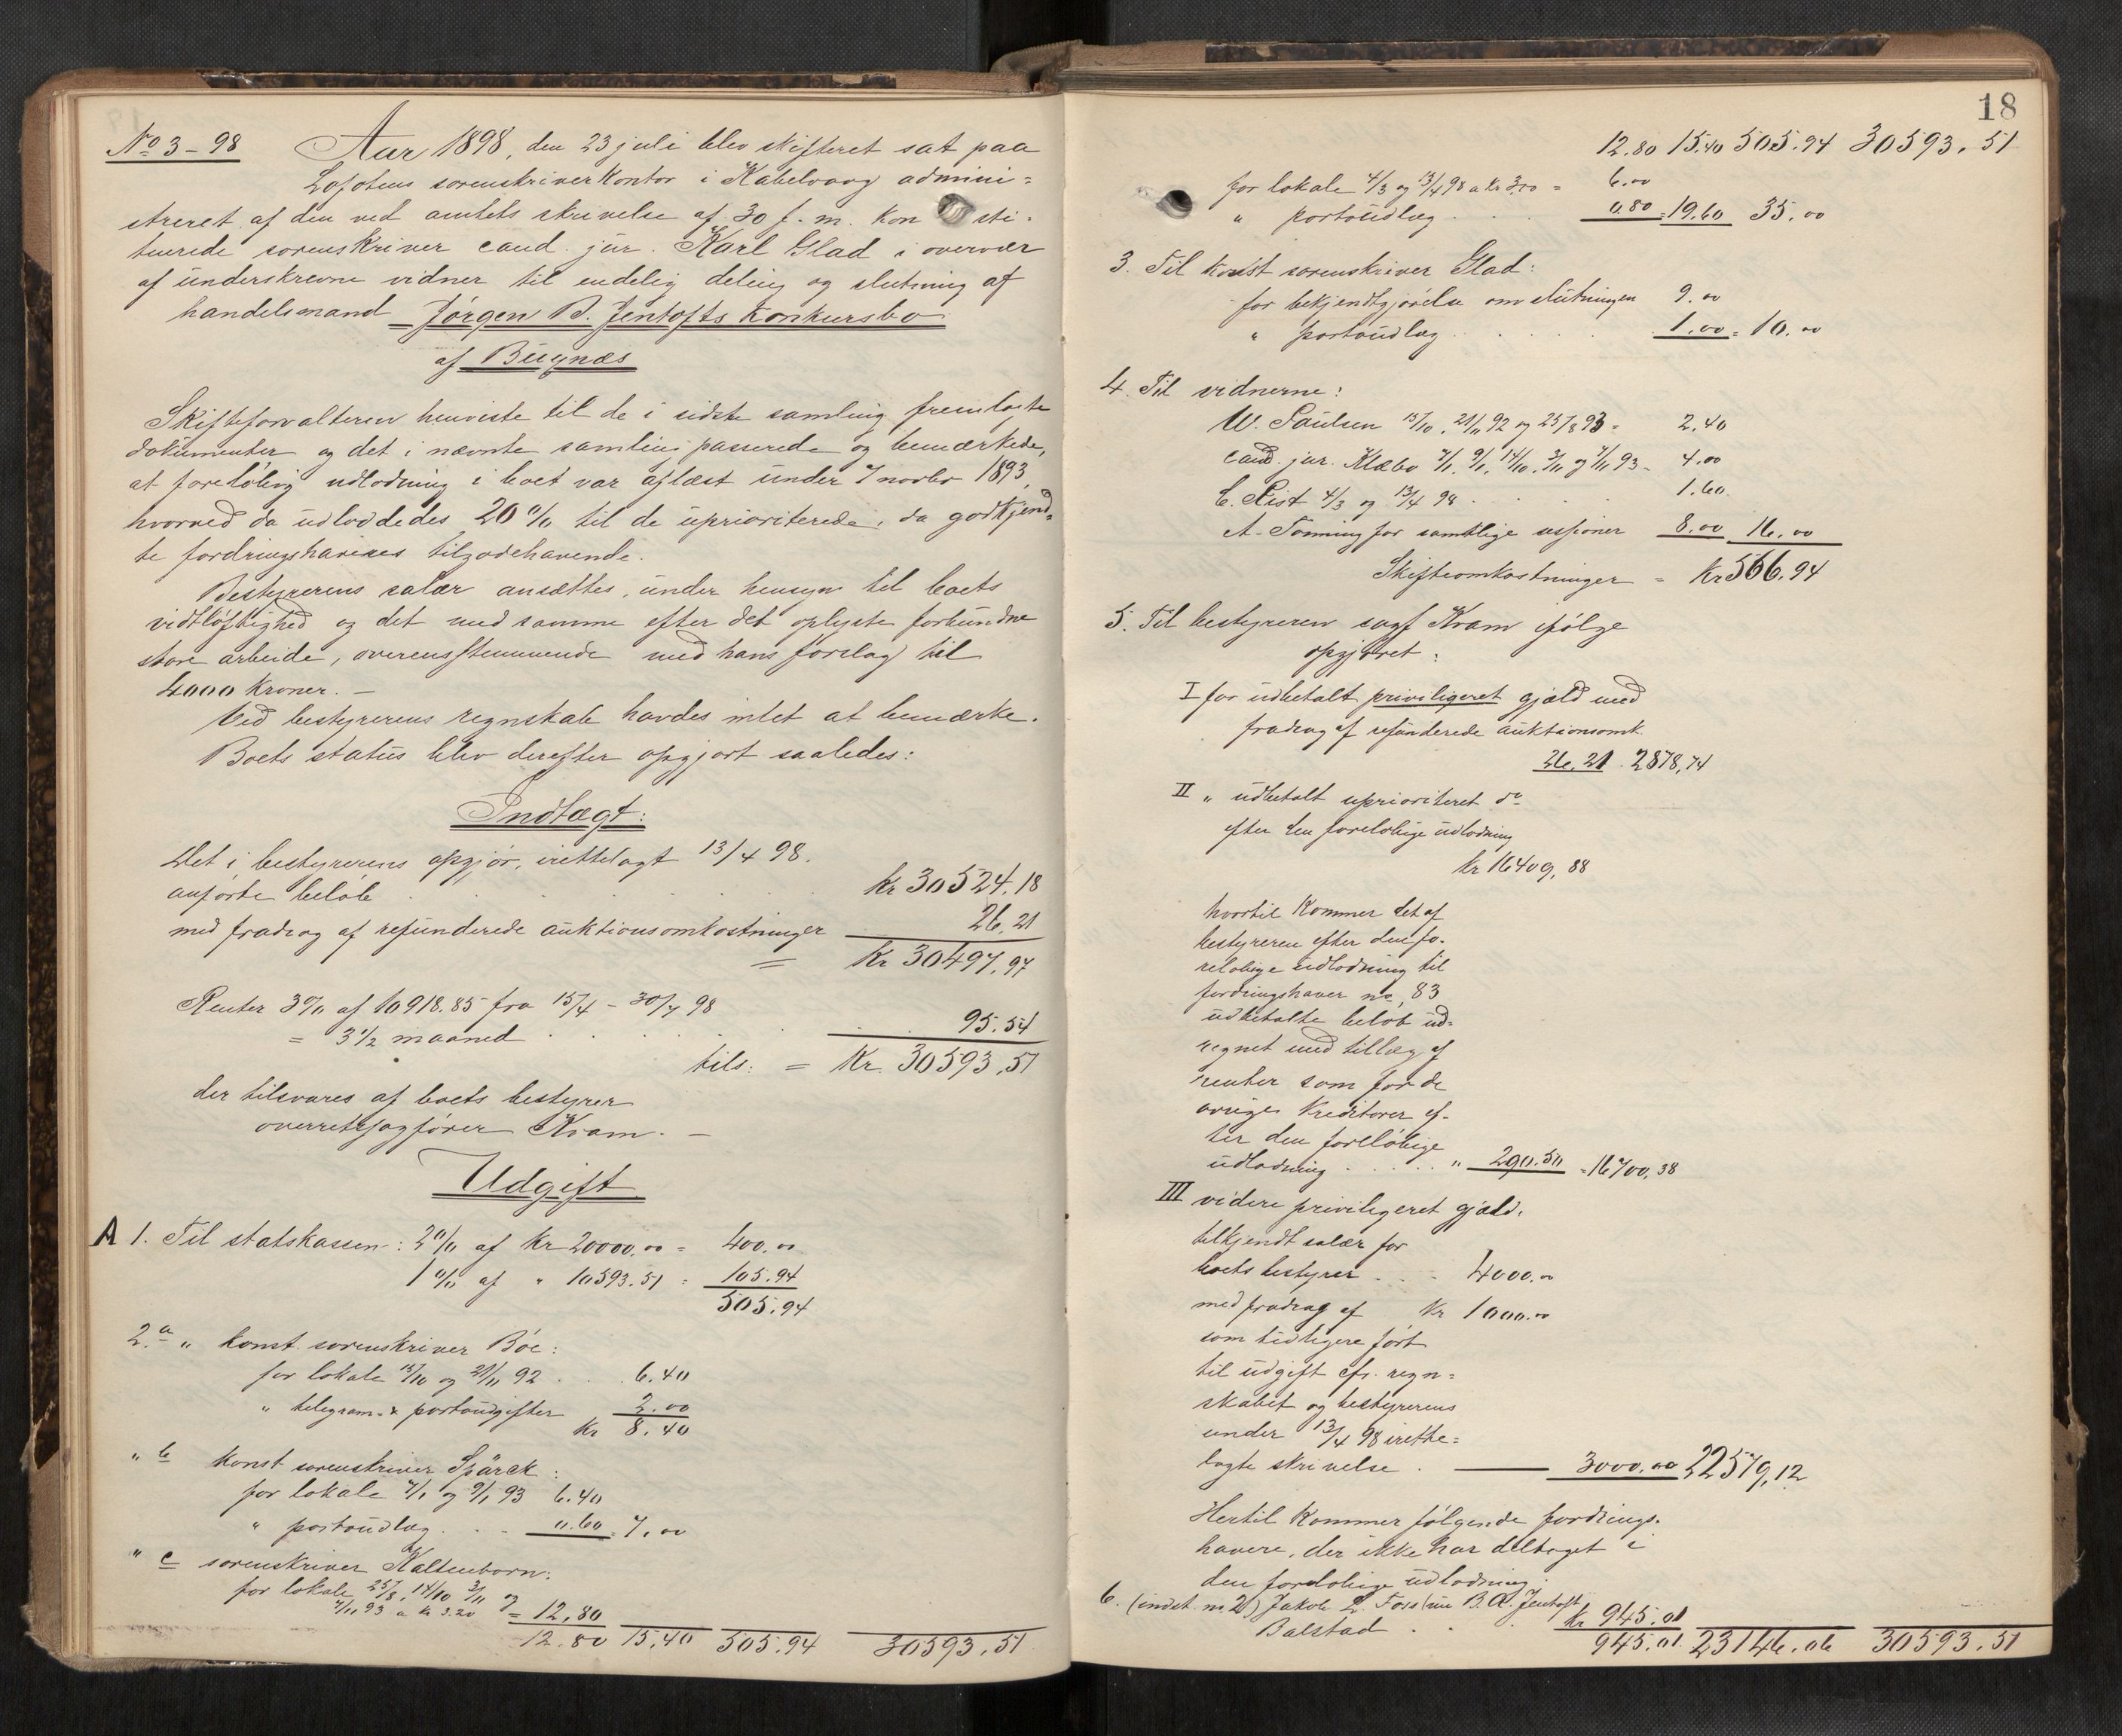 No 3-98 Aar 1898, den 23 juli blev skifteret sat paa
Lofotens sorenskriverkontor i Kabelvaag admini=
streret af den ved amtets skrivelse af 30 f. m. kon sti=
tuerede sorenskriver cand. jur. Karl Glad i overvær
af underskrevne vidner til endelig deling og slutning af
handelsmand Jørgen B. Jentofts konkursbo
af Bugnæs
Skifteforvalteren henviste til de i sidste samling fremlagte
dokumenter og det i nævnte samling passerede og bemærkede,
at foreløbig udlodning i boet var aflæst under 7 novbr 1893,
hvorved da udloddedes 20% til de uprioriterede, da godkjend=
te fordringshaveres tilgodehavende.
Bestyrerens salær ansættes, under hensyn til boets
vidtløftighed og det med samme efter det oplyste forbundne
store arbeide, overensstemmende med hans forslag til
4000 kroner. —
Ved bestyrerens regnskab havdes intet at bemærke.
Boets status blev derefter opgjort saaledes:
Indtægt:
Det i bestyrerens opgjør, irettelagt 13/4 98.
anførte beløb . . . . . kr 30524.18
med fradrag af refunderede auktionsomkostninger 26.21
= Kr 30497.97
Renter 3% af 10918.85 fra 15/4 - 30/7 98
= 3 1/2 maaned . . . . 95.54
tils: = Kr. 30593.51
der tilsvares af boets bestyrer
overretssagfører Kram. —
Udgift
A 1. Til statskassen: 2% af Kr 20000.00 = 400.00
1% af " 10593.51 = 105.94
505.94
2.a " konst. sorenskriver Böe:
for lokale 15/10 og 21/11 92 . . 6.40
" telegram- & portoudgifter 2.00
Kr 8.40
" b konst sorenskriver Spärck:
for lokale 7/1 og 9/1 93 6.40
" portoudlæg . . . 0.60 = 7.00
" c sorenskriver Kaltenborn:
for lokale 25/8, 14/10 3/11 og
7/11 93 a kr 3.20 = 12.80
12.80 15.40 505.94 30593.51
18
12.80 15.40 505.94 30593.51
for lokale 4/3 og 13/4 98 a kr 3.00 = 6.00
" portoudlæg . . . 0.80 = 19.60 35.00
3. Til konst sorenskriver Glad:
for bekjendtgjørelse om slutningen 9.00
" portoudlæg . . . . 1.00 = 10.00
4. Til vidnerne:
W. Paulsen 15/10, 21/11 92 og 25/8 93 = 2.40
cand. jur. Klæbo 7/1, 9/1, 14/10, 3/11 og 7/11 93 - 4.00
C. Rist 4/3 og 13/4 98 . . . . 1.60
A. Tønning for samtlige sessioner 8.00 16.00
Skifteomkostninger = Kr 566.94
5. Til bestyreren sagf Kram ifølge
opgjøret:
I for udbetalt priviligeret gjæld med
fradrag af refunderede auktionsomk.
26.21 . 2878,74
II " udbetalt uprioriteret do
efter den foreløbige udlodning
kr 16409,88
hvortil kommer det af
bestyreren efter den fo-
reløbige udlodning til
fordringshaver no 83
udbetalte beløb ud=
regnet med tillæg af
renter som for de
øvrige kreditorer ef-
ter den foreløbige
udlodning . . . . . " 290.50 = 16700,38
III videre priviligeret gjæld:
tilkjendt salær for
boets bestyrer . . . 4000.00
med fradrag af Kr 1000.00
som tidligere ført
til udgift cfr. regn=
skabet og bestyrerens
under 13/4 98 irette=
lagte skrivelse . — 3000.00 22579,12
Hertil kommer følgende fordrings-
havere, der ikke har deltaget i
den foreløbige udlodning:
6. (indst. no 2) Jakob L. Foss (nu B. A. Jentoft)
Balstad . . . Kr 945.01
945.01 23146.06 30593.51